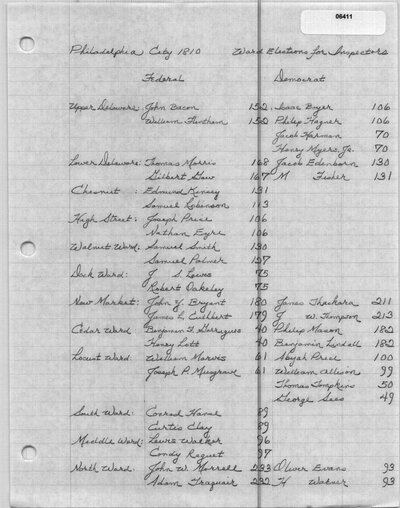 06411
Philadelphia City 1810 Ward Elections for Inspectors
Federal Democrat
Upper Delaware: John Bacon 152 Isaac Boyer 106
William Flintham 152 Philip Hagner 106
Jacob Harman 70
Henry Myers, Jr. 70
Lower Delaware: Thomas Morris 168 Jacob Edenborn 130
Gilbert Gaw 167 M Fisher 131
Chesnut : Edmund Kinsey 131
Samuel Robinson 113
High Street: Joseph Price 106
Nathan Eyre 106
Walnut Ward: Samuel Smith 130
Samuel Palmer 127
Dock Ward: J S Lewis 75
Robert Oakeley 75
New Market: John Y. Bryant 180 James Thackara 211
James L. Cuthbert 179 J W. Tompson 213
Cedar Ward Benjamin F. Garrigues 40 Philip Mason 182
Henry Lott 40 Benjamin Lendall 182
Locust Ward: William Marvis 61 Abijah Price 100
Joseph P. Musgrave 61 William Allison 99
Thomas Tompkins 50
George Sees 49
South Ward: Conrad Hanse 89
Curtis Clay 89
Meddle Ward: Lewis Walker 96
Condy Reguet 97
North Ward: John W. Morrell 233 Oliver Evans 93
Adam Traquair 232 H 93